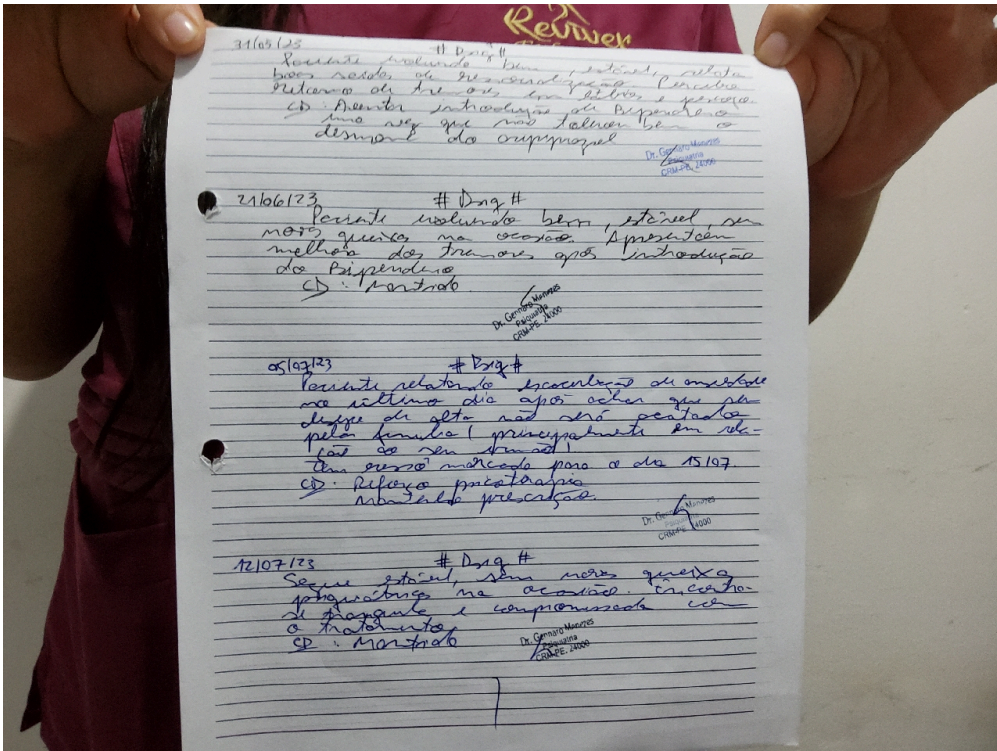 Reviver
31/05/23 # Psiq #
Paciente evoluindo bem, estável, relata
boas saídas de ressocialização. Percebe
retorno de tremores em lábios e pescoço.
CD: introdução de Biperideno
uma vez que não tolerou bem o
desmame do
Dr. Gennaro Menezes
Psiquiatria
CRM-PE. 24000
21/06/23 # Psiq #
Paciente evoluindo bem, estável, sem
novas queixas na ocasião. Apresentou
melhora dos tremores após introdução
do Biperideno
CD: Mantido
Dr. Gennaro Menezes
Psiquiatria
CRM-PE. 24000
05/07/23 # Psiq #
Paciente relatando de ansiedade
no último dia após achar que seu
desejo de alta não será acatado
pela família (principalmente em rela-
ção ao seu irmão)
Tem marcado para o dia 15/07.
CD: Reforço psicoterapia
Mantenho prescrição.
Dr. Gennaro Menezes
Psiquiatria
CRM-PE. 24000
12/07/23 # Psiq #
Segue estável, sem novas queixas
psiquiátricas na ocasião. Encontra-
se tranquila e compromissada com
o tratamento
CD: Mantido
Dr. Gennaro Menezes
Psiquiatria
CRM-PE. 24000